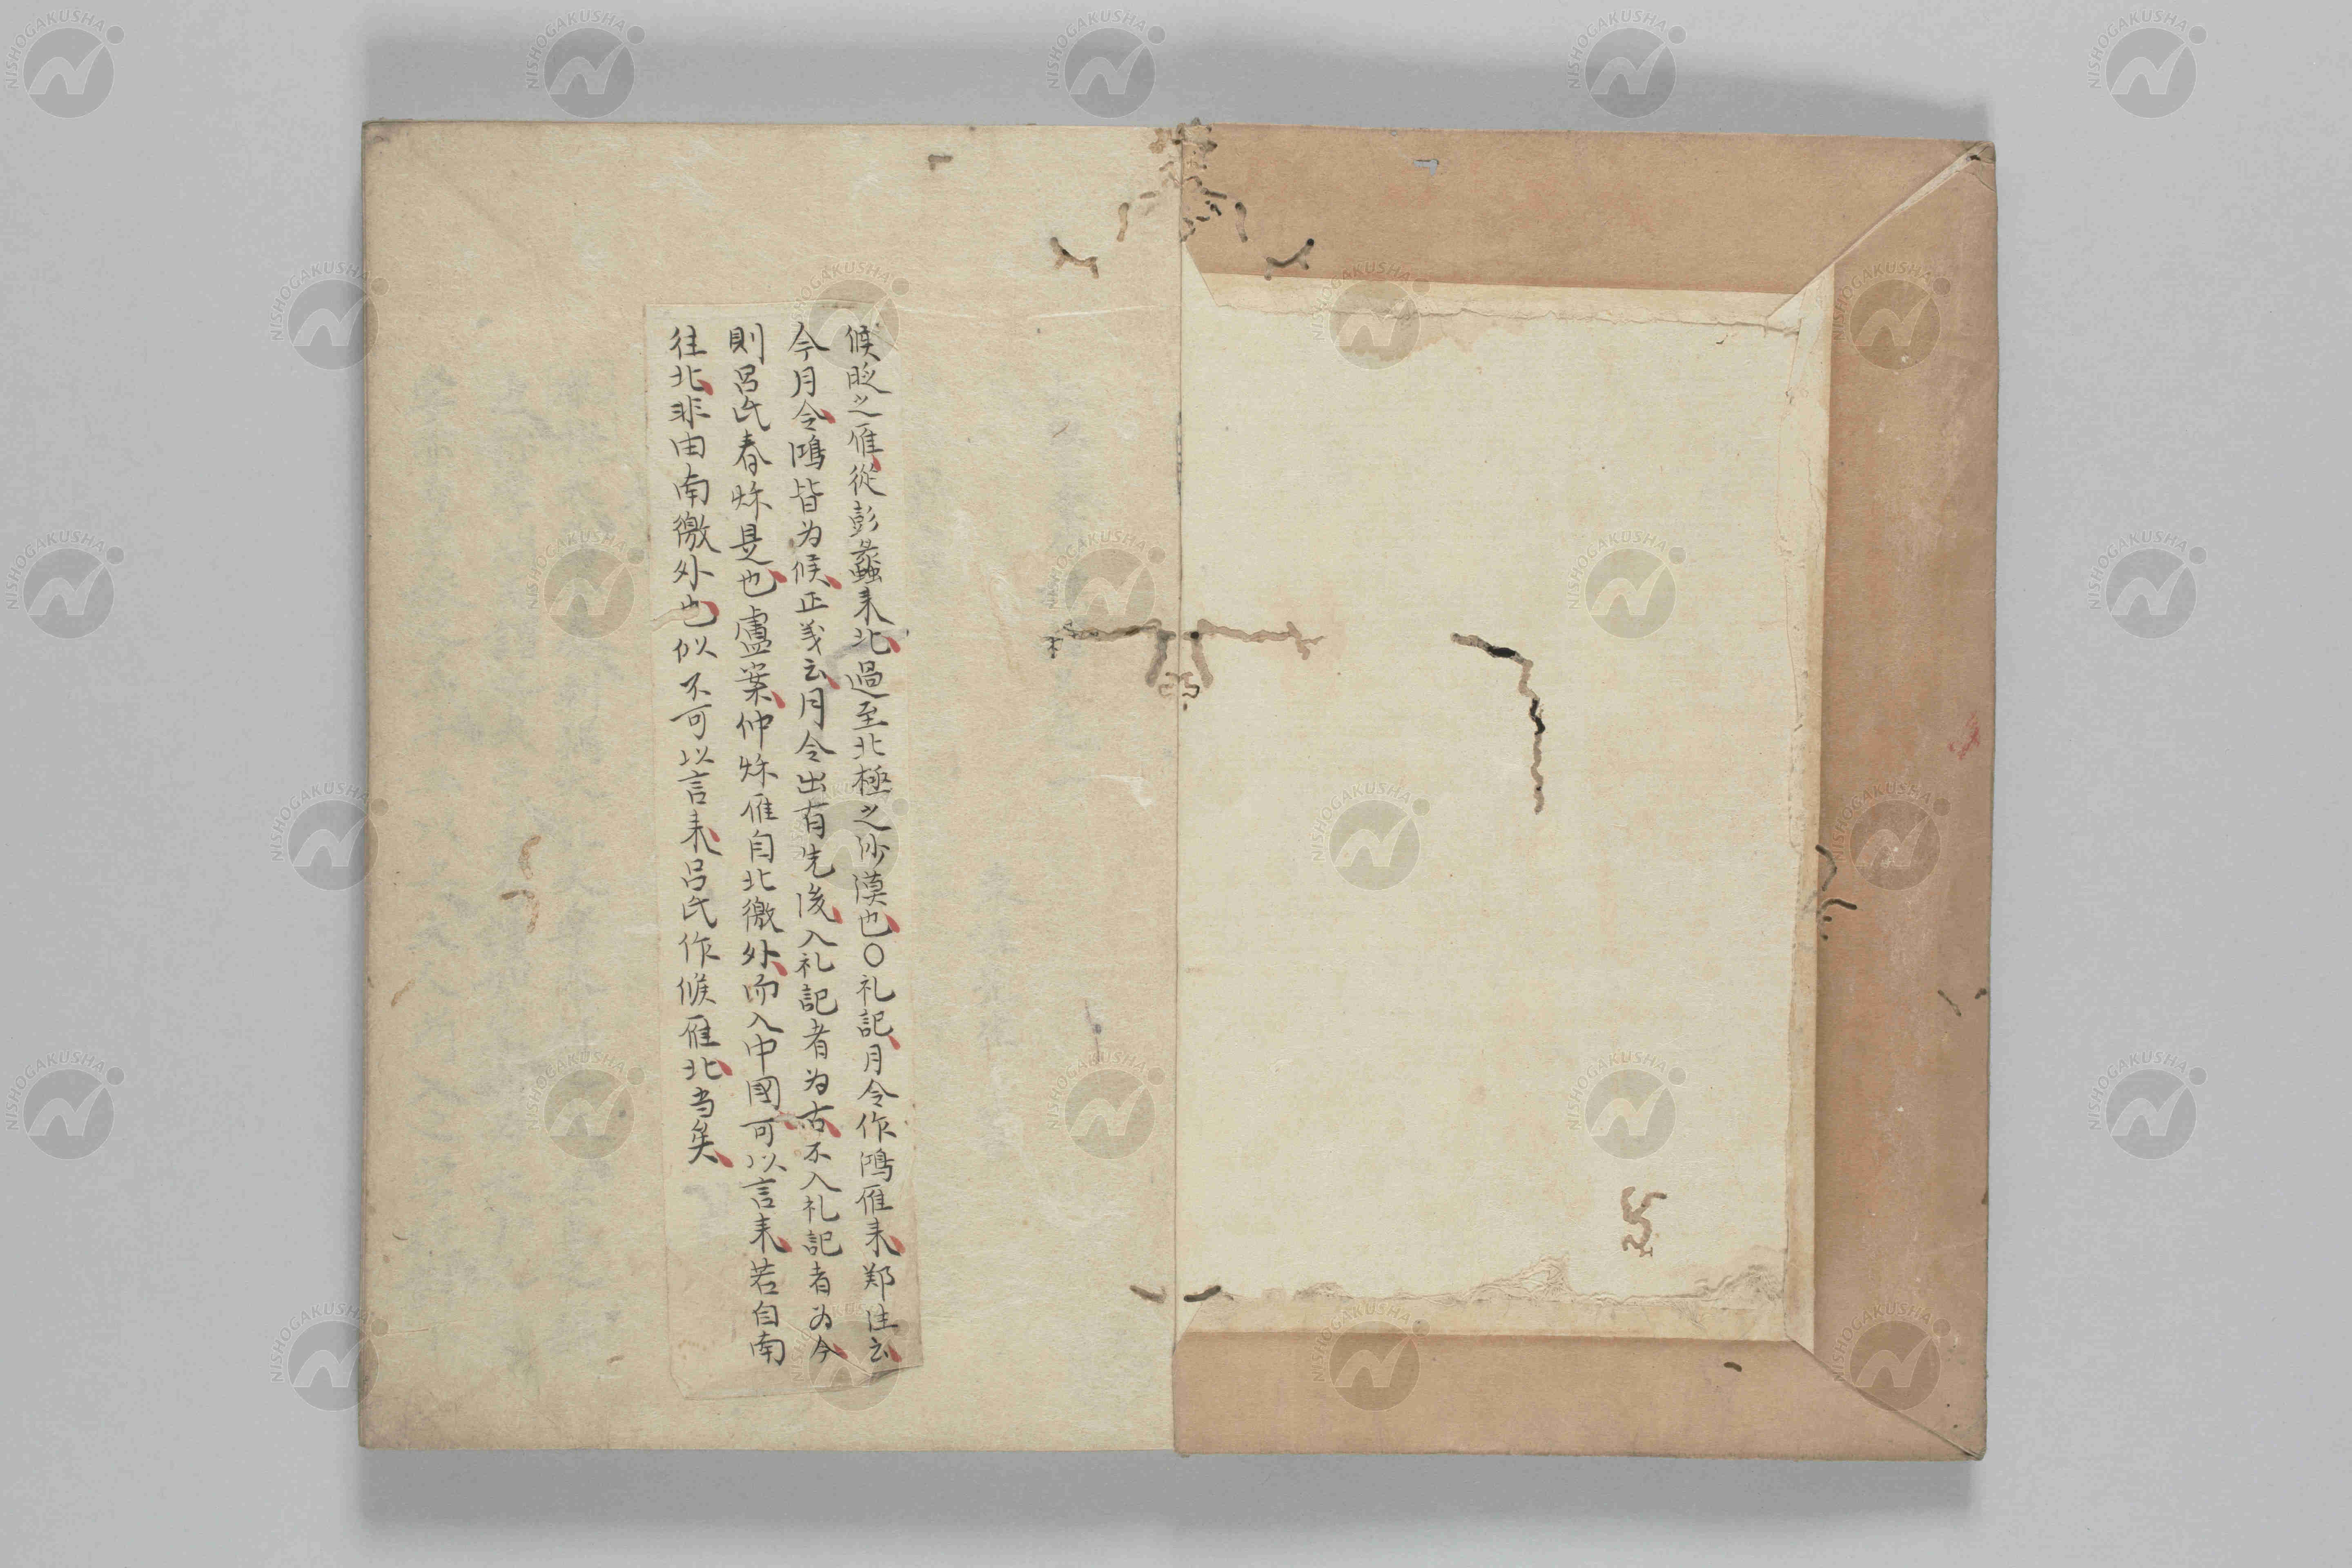 候時之雁從彭蠡来北過至北極之沙漠也〇礼記月令作鴻雁来郑注云
今月令鴻皆为候正义云月令出有先後入礼記者为古不入礼記者为今
則呂氏春秌是也盧案仲秌雁自北徼外而入中國可以言来若自南
往北非由南徼外也似不可以言来呂氏作候雁北当矣
NISHOGAKUSHA